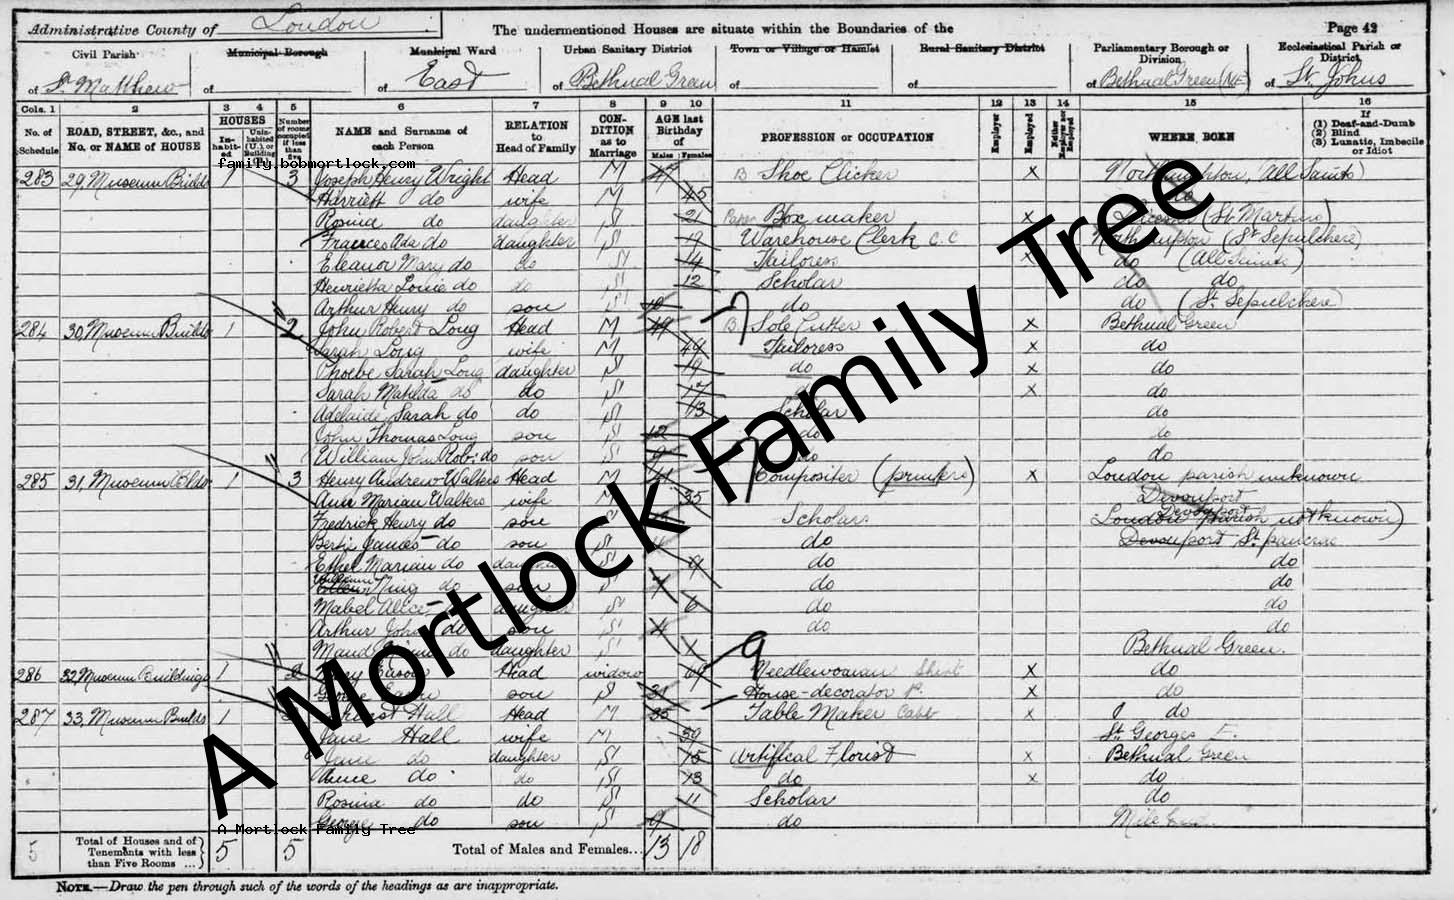 Administrative County of London The undermentioned Houses are situate within the Boundaries of the Page 42
Civil Parish Municipal Borough Municipal Ward Urban Sanitary District Town or Village or Hamlet Rural Sanitary District Parliamentary Borough or Division Ecclesiastical Parish or District
of St. Matthew of of East of Bethnal Green of of of Bethnal Green (NE) of St. Johns
Cols. 1 2 3 4 5 6 7 8 9 10 11 12 13 14 15 16
No. of Schedule ROAD, STREET, &c., and No. or NAME of HOUSE HOUSES In-habit-ed Unin-habited (U.) or Building Number of rooms occupied if less than five NAME and Surname of each Person RELATION to Head of Family CON-DITION as to Marriage AGE last Birthday of Males Females PROFESSION or OCCUPATION Employer Employed Neither Employer nor Employed WHERE BORN If (1) Deaf-and-Dumb (2) Blind (3) Lunatic, Imbecile or Idiot
family.bobmortlock.com
283 29, Museum Builds 1 3 Joseph Henry Wright Head M 47 Shoe Clicker X Northampton, (All Saints)
Harriett do wife M 45 do
Rosina do daughter S 21 Paper Box maker X Leicester (St Martins)
Frances Ada do daughter S 19 Warehouse Clerk C.C X Northampton (St Sepulchere)
Eleanor Mary do do S 14 Tailoress X do (All Saints)
Henrietta Louie do do S 12 Scholar do do
Arthur Henry do son S 10 do do (St. Sepulchere)
284 30, Museum Builds 1 2 John Robert Long Head M 49 Sole Cutter X Bethnal Green
Sarah Long wife M 49 Tailoress X do
Phoebe Sarah Long daughter S 19 do X do
Sarah Matilda do do S 17 do X do
Adelaide Sarah do do S 13 Scholar do
John Thomas Long son S 12 do do
William John Rob: do son S 9 do do
285 31, Museum Blds 1 3 Henry Andrew Walters Head M 41 Compositer (printers) X London parish unknown
Ann Marian Walters wife M 35 Devonport
Fredrick Henry do son S Scholars London parish not known) Devonport
Bertie James do son S do Devonport St. pancras
Ethel Marian do daughter S 9 do do
William King do son S 7 do do
Mabel Alice do daughter S 6 do do
Arthur John do son S 4 do do
Maud do daughter S Bethnal Green.
286 32, Museum Buildings 1 2 Head widow 69 Needlewoman Shirt X do
George son S 31 House-decorator X do
287 33, Museum Builds 1 Hall Head M 35 Table Maker Cabt X do
Jane Hall wife M 39 St. Georges E.
Jane do daughter S 15 Artifical Florist X Bethnal Green
Annie do do S 13 do X do
Rosina do do S 11 Scholar do
George do son S 9 do Mile End
A Mortlock Family Tree
A Mortlock Family Tree
5 Total of Houses and of Tenements with less than Five Rooms ... 5 5 Total of Males and Females... 13 18
NOTE.—Draw the pen through such of the words of the headings as are inappropriate.